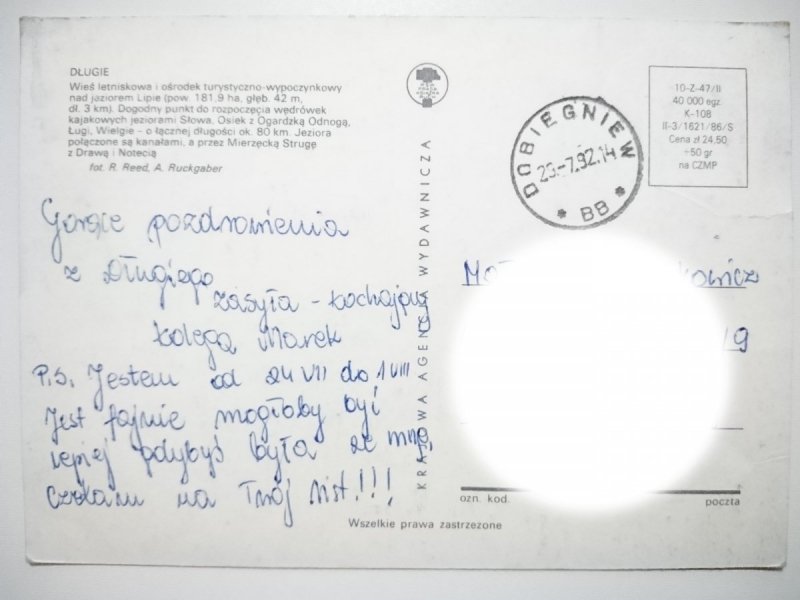 DŁUGIE
Wieś letniskowa i ośrodek turystyczno-wypoczynkowy
nad jeziorem Lipie (pow. 181,9 ha, głęb. 42 m,
dł. 3 km). Dogodny punkt do rozpoczęcia wędrówek
kajakowych jeziorami Słowa, Osiek z Ogardzką Odnogą,
Ługi, Wielgie - o łącznej długości ok. 80 km. Jeziora
połączone są kanałami, a przez Mierzęcką Strugę
z Drawą i Notecią
fot. R. Reed, A. Ruckgaber
Gorące pozdrowienia
z Długiego
zasyła - kochający
kolega Marek
P.S. Jestem od 24 VII do 1 VIII
Jest fajnie mogłoby być
lepiej gdybyś była ze mną,
czekam na Twój list!!!
KRAJOWA AGENCJA WYDAWNICZA
DOBIEGNIEW
-7.92.14
* BB *
10-Z-47/II
40 000 egz.
K-108
II-3/1621/86/S
Cena zł 24,50
+50 gr
na CZMP
19
ozn. kod.
poczta
Wszelkie prawa zastrzeżone